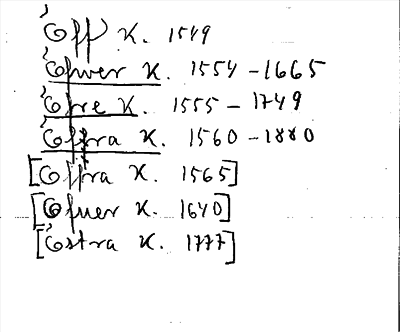 Öff K. 1549
Öfwer K. 1554-1665
Öfre K. 1555-1749
Öfra K. 1560-1880
[Öffra K. 1565]
[Öfuer K. 1640]
[Östra K. 1777]